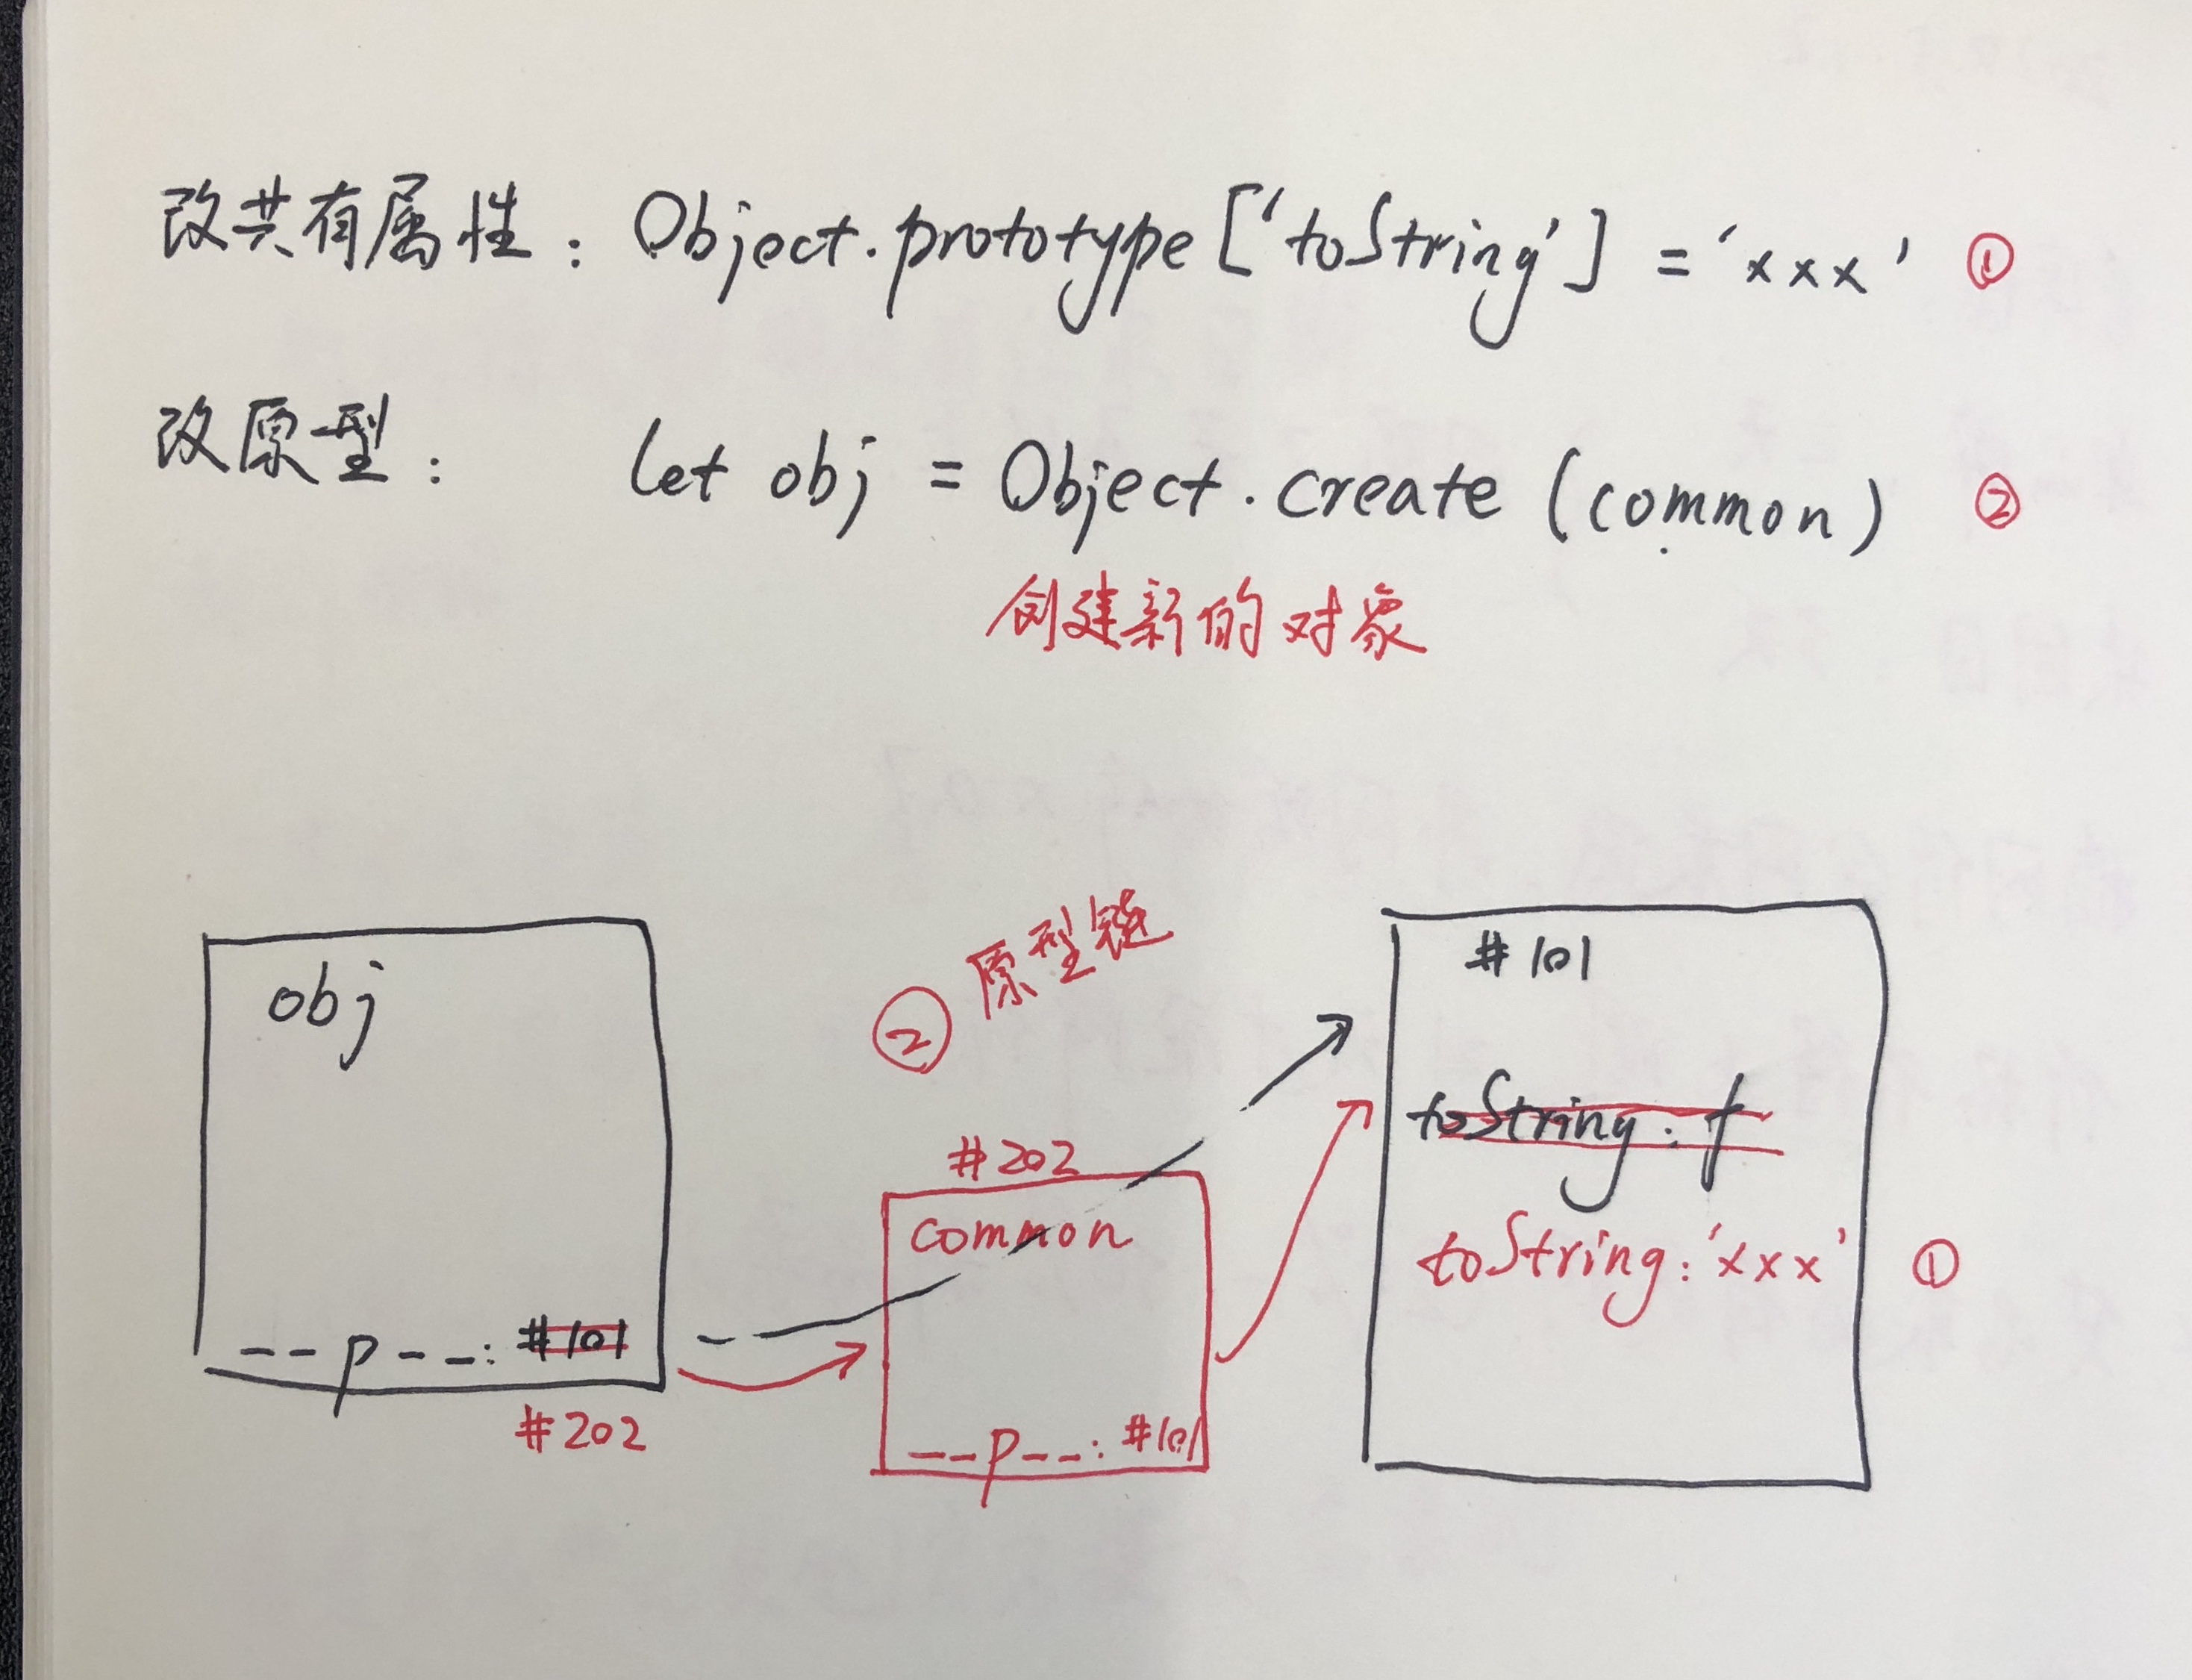 改共有属性：Object.prototype['toString'] = 'xxx' ①
改原型： let obj = Object.create (common) ②
创建新的对象
② 原型链
obj
__p__: #101
#202
#202
common
__p__: #101
#101
toString: f
toString:'xxx' ①